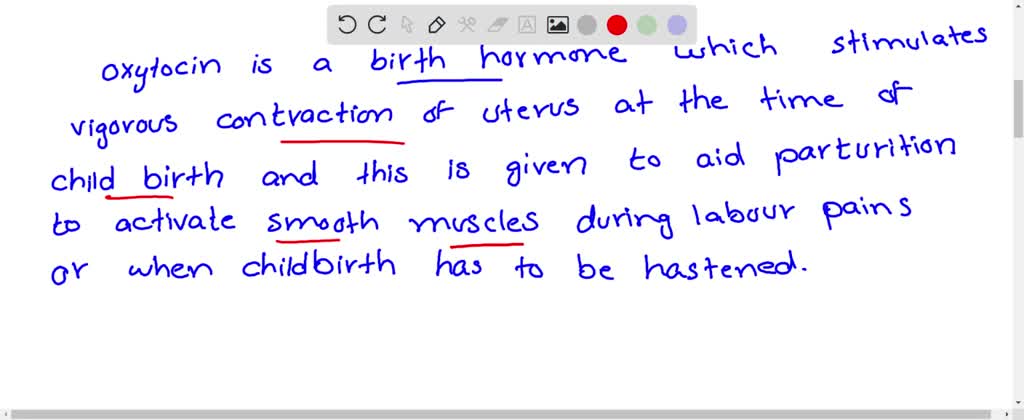 oxytocin is a birth hormone which stimulates
vigorous contraction of uterus at the time of
child birth and this is given to aid parturition
to activate smooth muscles during labour pains
or when childbirth has to be hastened.